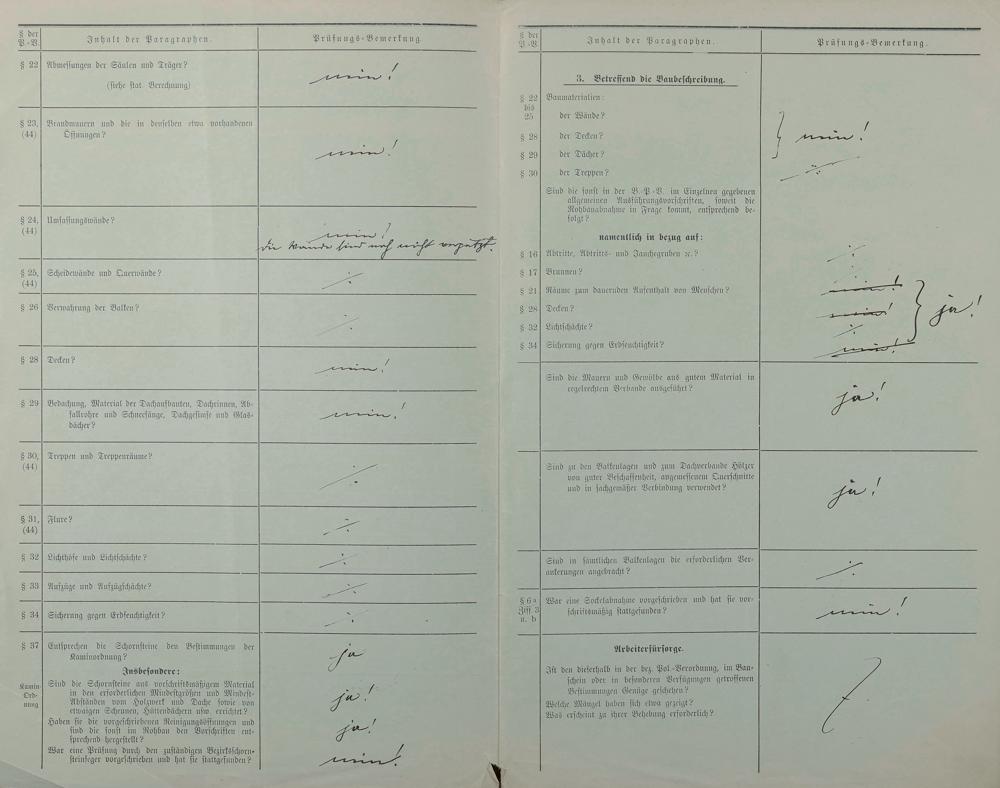 § der
P.-V.
Inhalt der Paragraphen.
Prüfungs-Bemerkung
§ 22
Abmessungen der Säulen und Träger?
(siehe stat. Berechnung)
nein!
§ 23,
(44)
Brandmauern und die in denselben etwa vorhandenen
Öffnungen?
nein!
§ 24,
(44)
Umfassungswände?
nein!
die Wände sind noch nicht verputzt.
§ 25,
(44)
Scheidewände und Querwände?
÷
§ 26
Verwahrung der Balken?
÷
§ 28
Decken?
nein!
§ 29
Bedachung, Material der Dachaufbauten, Dachrinnen, Ab-
fallrohre und Schneefänge, Dachgesimse und Glas-
dächer?
nein!
§ 30,
(44)
Treppen und Treppenräume?
÷
§ 31,
(44)
Flure?
÷
§ 32
Lichthöfe und Lichtschächte?
÷
§ 33
Aufzüge und Aufzugschächte?
÷
§ 34
Sicherung gegen Erdfeuchtigkeit?
÷
§ 37
Entsprechen die Schornsteine den Bestimmungen der
Kaminordnung?
ja
Insbesondere:
Kamin-
Ord-
nung
Sind die Schornsteine aus vorschriftsmäßigem Material
in den erforderlichen Mindestgrößen und Mindest-
Abständen vom Holzwerk und Dache sowie von
etwaigen Scheunen, Hüttendächern usw. errichtet?
ja!
Haben sie die vorgeschriebenen Reinigungsöffnungen und
sind die sonst im Rohbau den Vorschriften ent-
sprechend hergestellt?
ja!
War eine Prüfung durch den zuständigen Bezirksschorn-
steinfeger vorgeschrieben und hat sie stattgefunden?
nein!
§ der
P.-V.
Inhalt der Paragraphen.
Prüfungs-Bemerkung.
3. Betreffend die Baubeschreibung.
§ 22
bis
25
Baumaterialien:
der Wände?
§ 28
der Decken?
nein!
§ 29
der Dächer?
§ 30
der Treppen?
÷
Sind die sonst in der B.-P.-V. im Einzelnen gegebenen
allgemeinen Ausführungsvorschriften, soweit die
Rohbauabnahme in Frage kommt, entsprechend be-
folgt?
namentlich in bezug auf:
§ 16
Abtritte, Abtritts- und Jauchegruben ꝛc.?
÷
§ 17
Brunnen?
÷
§ 21
Räume zum dauernden Aufenthalt von Menschen?
nein!
§ 28
Decken?
nein!
ja!
§ 32
Lichtschächte?
÷
§ 34
Sicherung gegen Erdfeuchtigkeit?
nein!
Sind die Mauern und Gewölbe aus gutem Material in
regelrechtem Verbande ausgeführt?
ja!
Sind zu den Balkenlagen und zum Dachverbande Hölzer
von guter Beschaffenheit, angemessenem Querschnitte
und in sachgemäßer Verbindung verwendet?
ja!
Sind in sämtlichen Balkenlagen die erforderlichen Ver-
ankerungen angebracht?
÷
§ 6a
Ziff. 3
u. b
War eine Sockelabnahme vorgeschrieben und hat sie vor-
schriftsmäßig stattgefunden?
nein!
Arbeiterfürsorge.
Ist den dieserhalb in der bez. Pol.-Verordnung, im Bau-
schein oder in besonderen Verfügungen getroffenen
Bestimmungen Genüge geschehen?
Welche Mängel haben sich etwa gezeigt?
Was erscheint zu ihrer Behebung erforderlich?